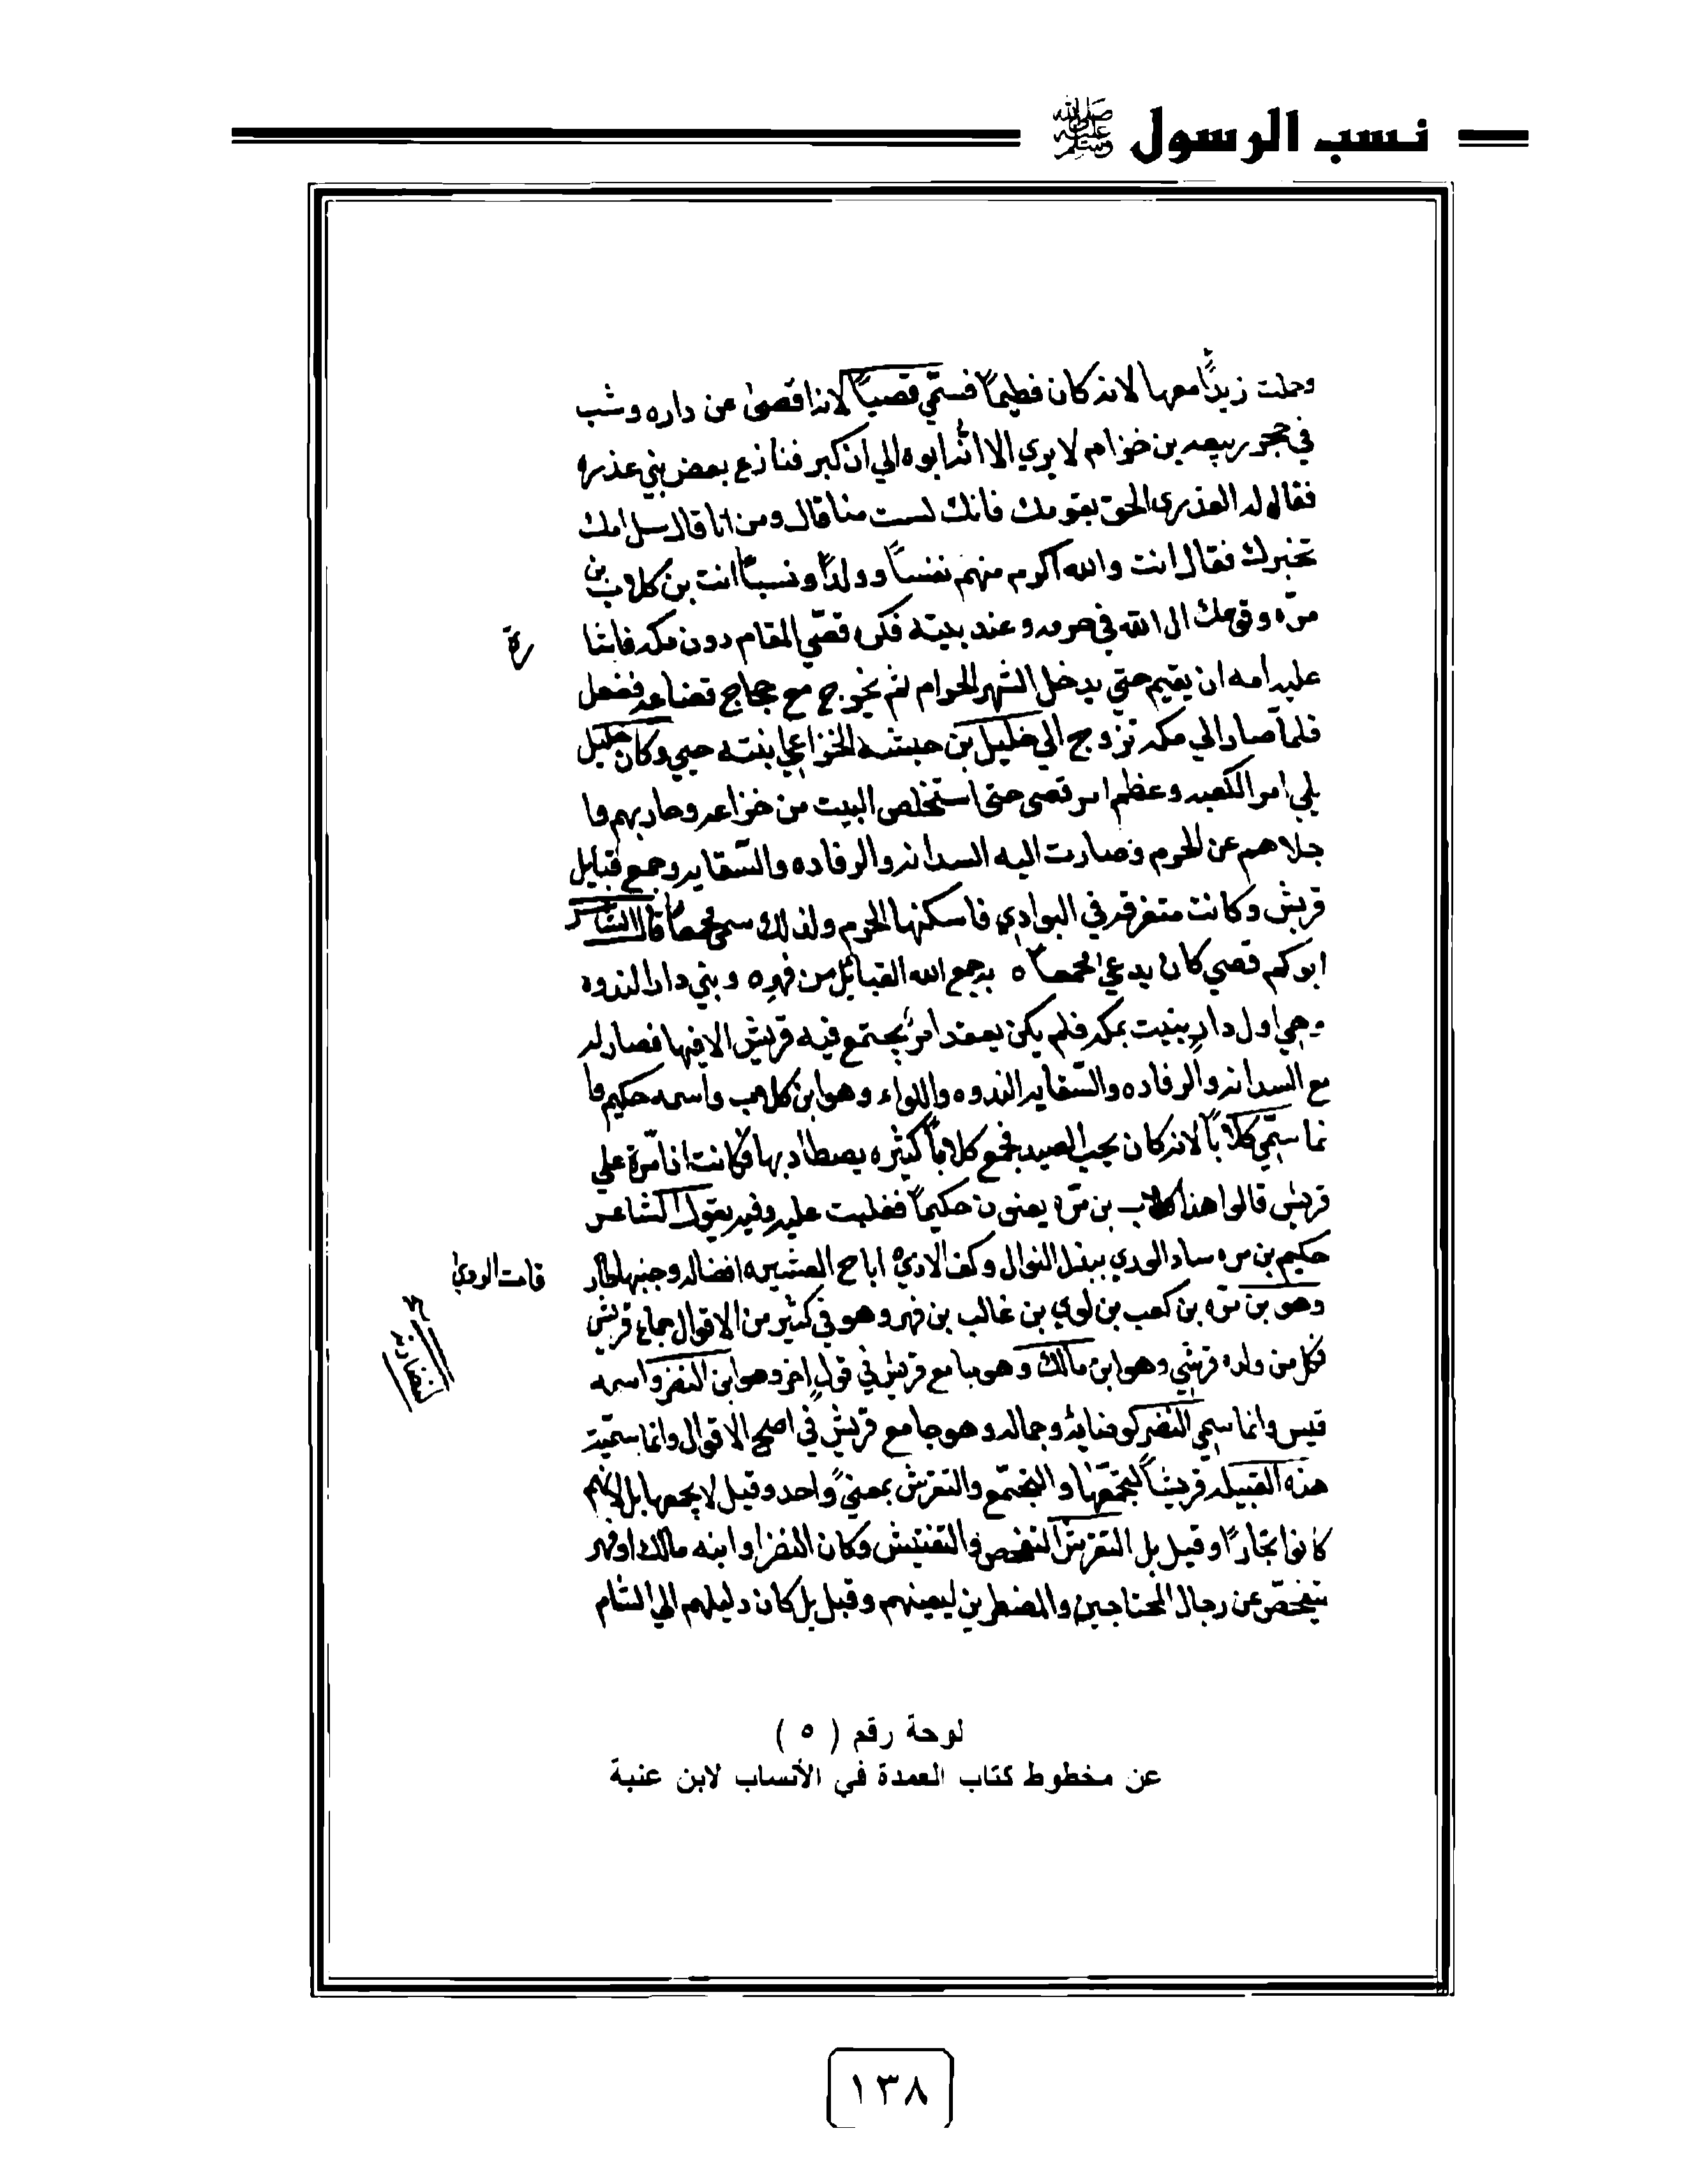 نسب الرسول ﷺ
وحملت زيداً معها لانه كان فطيماً فسمّي قصياً لانه اقصىٰ عن داره وشب
في حجر ربيعه بن خزام لا يري الا انّه ابوه الي ان كبر فنازع بعض بني عذره
فقال له العذري الحق بقومك فانك لست منا قال وممن انا قال سل امك
تخبرك فقال انت والله اكرم منهم نفساً وولداً ونسباً انت بن كلاب بن
مرّه وقومك ال الله في حرمه وعند بيته فكره قصّي المقام دون مكه فاشا
رة
عليه امه ان يقيم حتي يدخل الشهر الحرام ثم يخرج مع حجاج قضاعه ففعل
فلما صار الي مكه تزوج الي خليل بن حبشه الخزاعي ابنته حبي وكان خليل
يلي امر الكعبه وعظم امر قصي حتى استخلص البيت من خزاعه وحاربهم وا
جلاهم عن الحرم وصارت اليه السدانه والرفاده والسّقايه وجمع قبايل
قريش وكانت متفرقه في البوادي فاسكنها الحرم ولذلك سمى مجمعاً قال الشاعر
ابوكم قصي كان يدعي مجمعاً ه به جمع الله القبائل من فهره وبني دار الندوه
وهي اول دارٍ بنيت بمكه فلم يكن يعقد امرٌ يجتمع فيه قريش الا فيها فصار له
مع السدانه والرفاده والسّقايه الندوه واللواء وهو ابن كلاب واسمه حكيم وا
نما سمّي كلاباً لانه كان يحب الصيد فجمع كلاباً كثيره يصطاد بها وكانت اذا مرّة علي
قريش قالوا هذا كلاب بن مرّه يعنون حكيماً فغلبت عليه وفيه يقول الشاعر
حكيم بن مره ساد الوري ببذل النوال وكف الاذي ه اباح العشيره افضاله وجنبها
قامت الوديٰ
وهو بن مرّه بن كعب بن لوي بن غالب بن فهر وهو في كثير من الاقوال جماع قريش
فكل من ولده قرشي وهو ابن مالك وهو جامع قريش في قولٍ اخر وهو ابن النضر واسمه
قيس وانما سمي النضر لوضايه وجماله وهو جامع قريش في اصح الاقوال وانما سمّيت
هذه القبيله قريشاً لتجمّعها والتجمّع والتقرش بمعنيً واحد وقيل لا يجمعها بل لانهم
كانوا تجاراً وقيل بل التقرش التفحص والتفتيش وكان النضر او ابنه مالك او فهر
يتفحّص عن رجال المحتاجين والمضطرين ليعينهم وقيل بل كان دليلهم الي الشام
لوحة رقم ( ٥ )
عن مخطوط كتاب العمدة في الأنساب لابن عنبة
١٣٨